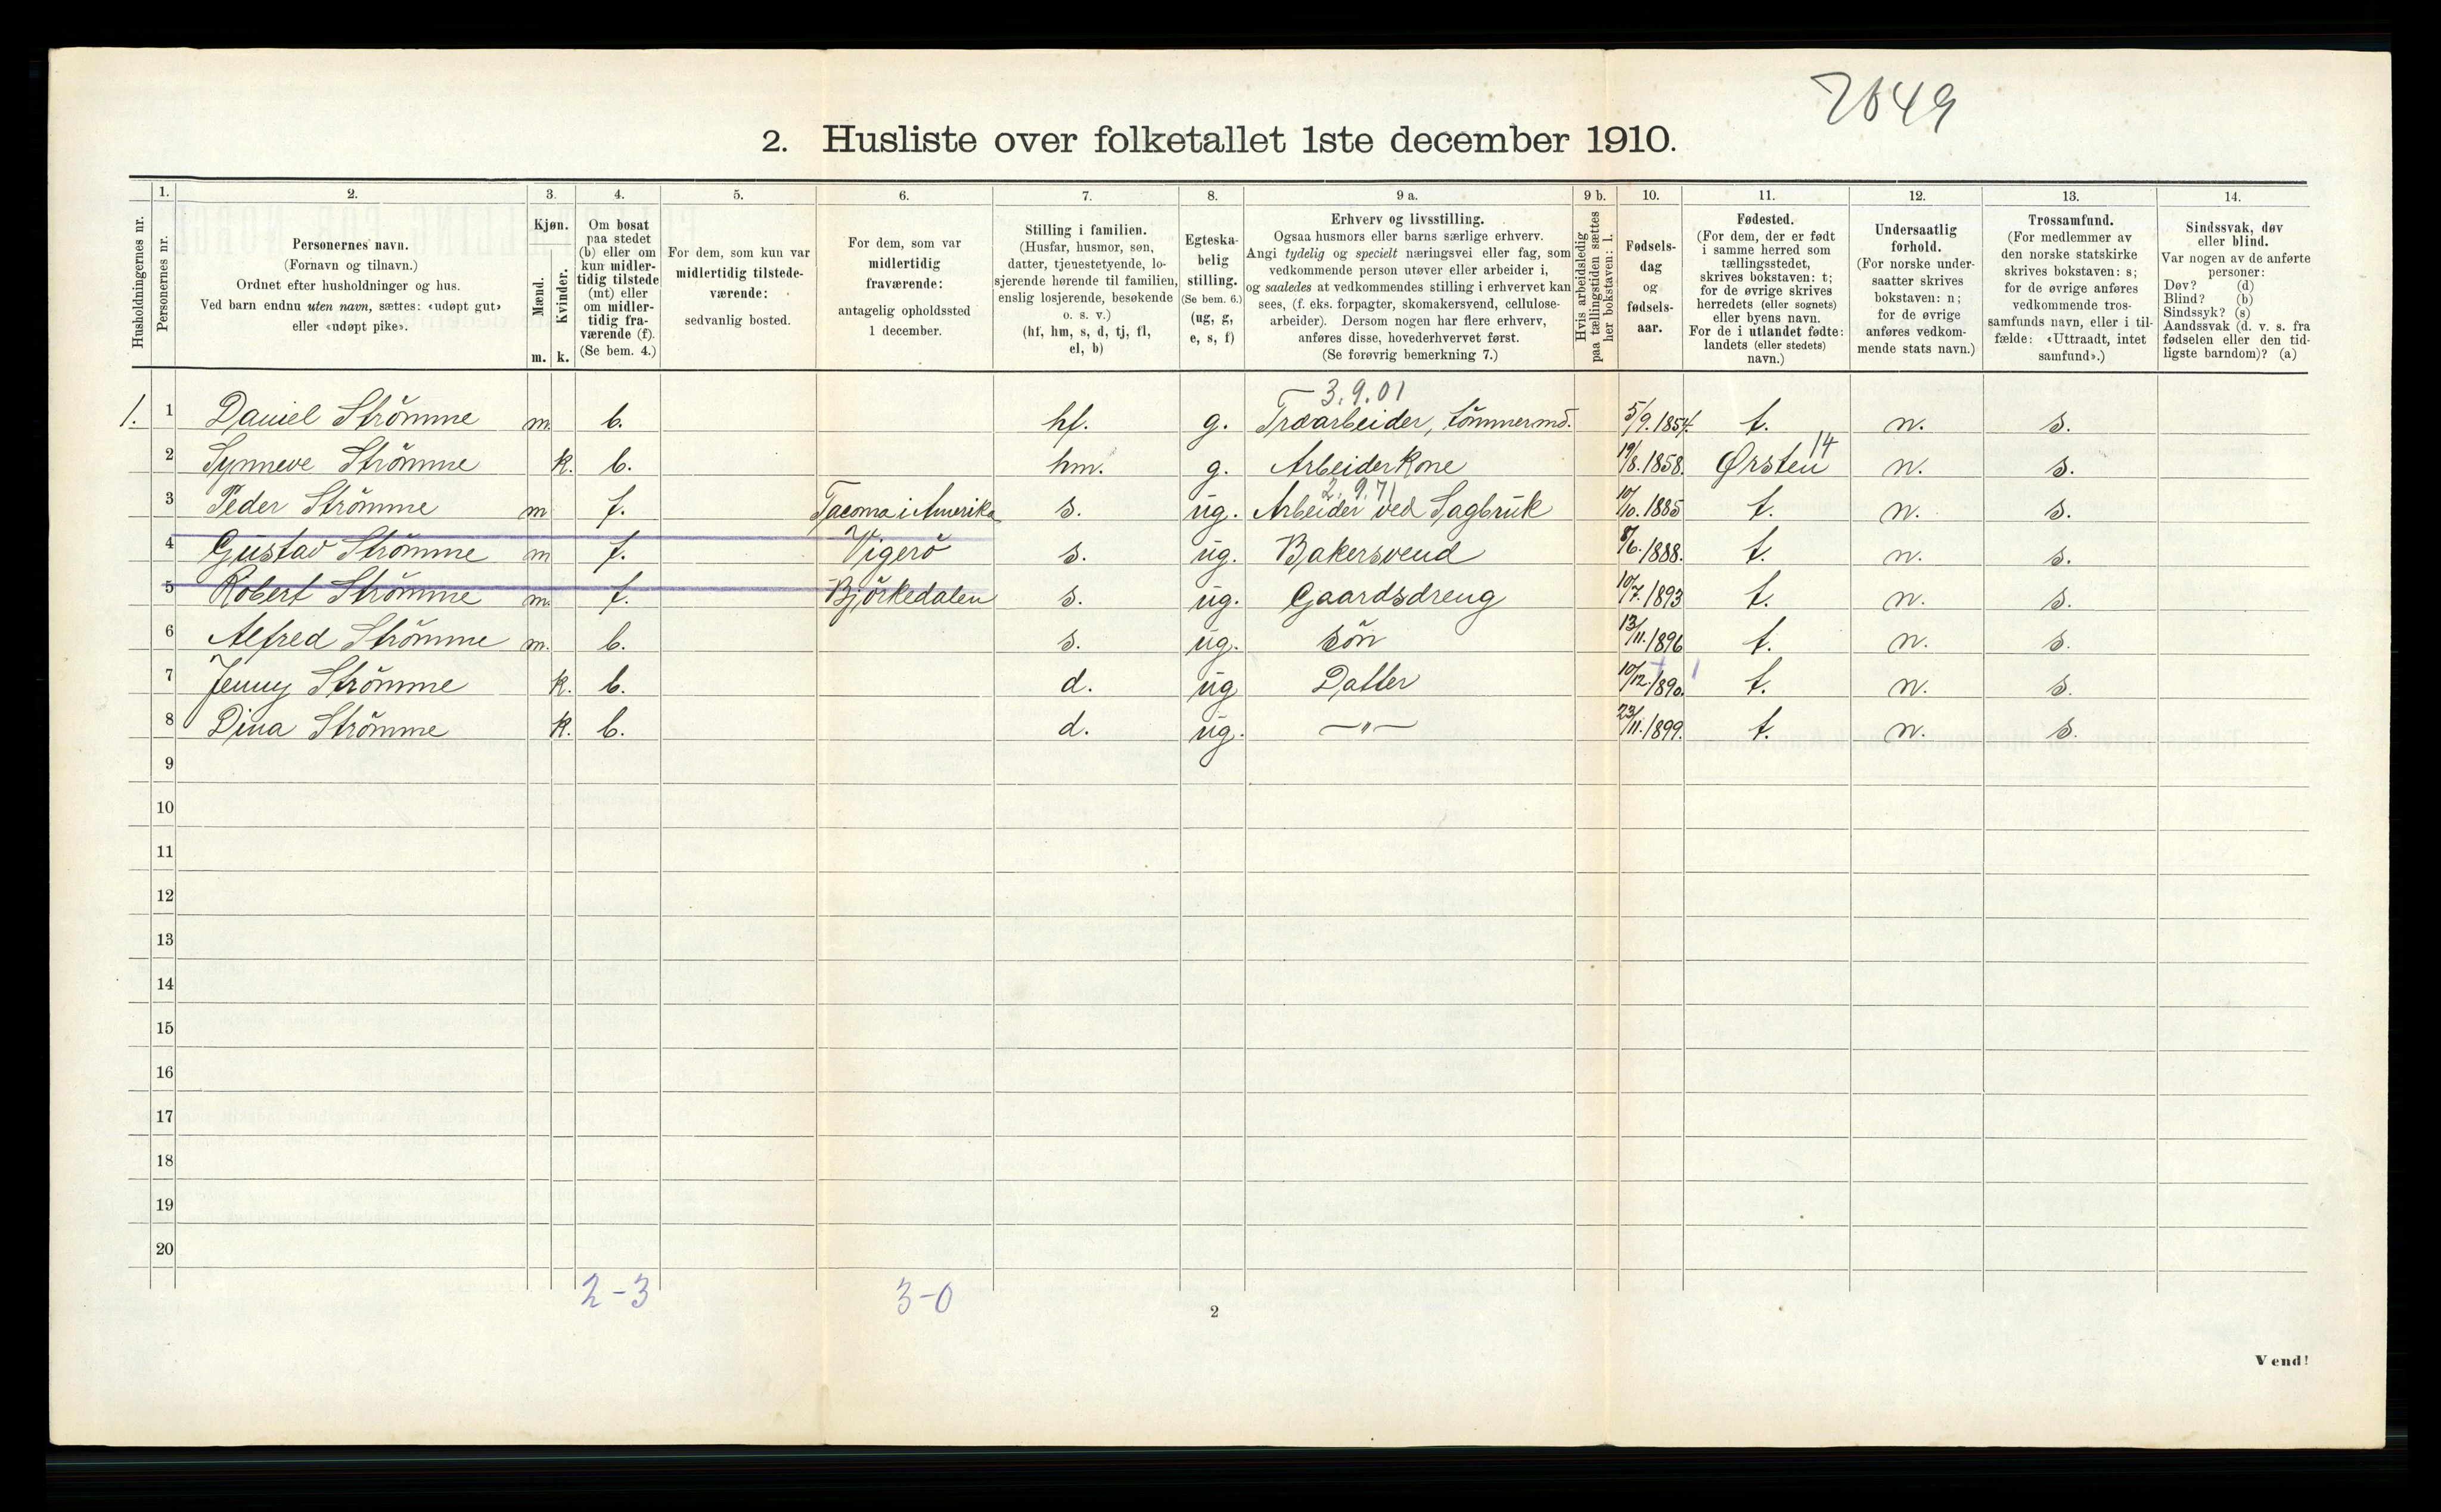 2. Husliste over folketallet 1ste december 1910.
1. 2. 3. 4. 5. 6. 7. 8. 9 a. 9 b. 10. 11. 12. 13. 14.
Husholdningernes nr.
Personernes nr.
Personernes navn.
(Fornavn og tilnavn.)
Ordnet efter husholdninger og hus.
Ved barn endnu uten navn, sættes: «udøpt gut»
eller «udøpt pike».
Kjøn.
Mænd.
Kvinder.
m. k.
Om bosat
paa stedet
(b) eller om
kun midler-
tidig tilstede
(mt) eller
om midler-
tidig fra-
værende (f).
(Se bem. 4.)
For dem, som kun var
midlertidig tilstede-
værende:
sedvanlig bosted.
For dem, som var
midlertidig
fraværende:
antagelig opholdssted
1 december.
Stilling i familien.
(Husfar, husmor, søn,
datter, tjenestetyende, lo-
sjerende hørende til familien,
enslig losjerende, besøkende
o. s. v.)
(hf, hm, s, d, tj, fl,
el, b)
Egteska-
belig
stilling.
(Se bem. 6.)
(ug, g,
e, s, f)
Erhverv og livsstilling.
Ogsaa husmors eller barns særlige erhverv.
Angi tydelig og specielt næringsvei eller fag, som
vedkommende person utøver eller arbeider i,
og saaledes at vedkommendes stilling i erhvervet kan
sees, (f. eks. forpagter, skomakersvend, cellulose-
arbeider). Dersom nogen har flere erhverv,
anføres disse, hovederhvervet først.
(Se forøvrig bemerkning 7.)
Hvis arbeidsledig
paa tællingstiden sættes
her bokstaven: l.
Fødsels-
dag
og
fødsels-
aar.
Fødested.
(For dem, der er født
i samme herred som
tællingsstedet,
skrives bokstaven: t;
for de øvrige skrives
herredets (eller sognets)
eller byens navn.
For de i utlandet fødte:
landets (eller stedets)
navn.)
Undersaatlig
forhold.
(For norske under-
saatter skrives
bokstaven: n;
for de øvrige
anføres vedkom-
mende stats navn.)
Trossamfund.
(For medlemmer av
den norske statskirke
skrives bokstaven: s;
for de øvrige anføres
vedkommende tros-
samfunds navn, eller i til-
fælde: «Uttraadt, intet
samfund».)
Sindssvak, døv
eller blind.
Var nogen av de anførte
personer:
Døv? (d)
Blind? (b)
Sindssyk? (s)
Aandssvak (d. v. s. fra
fødselen eller den tid-
ligste barndom)? (a)
3.9.01
1. 1 Daniel Strömme m. b. hf. g. Træarbeider, tömmermd. 5/9.1854. t. n. s.
14
2 Synneve Strömme k. b. hm. g. Arbeiderkone 19/8.1858. Ørsten n. s.
2.9.71
3 Peder Strömme m f. Tacoma i Amerika s. ug. Arbeider ved Sagbruk 10/10.1885 t. n. s.
4 Gustav Strömme m f. Vigerö s. ug. Bakersvend 8/6.1888. t. n. s.
5 Robert Strömme m. f. Björkedalen s. ug. Gaardsdreng 10/7.1893 t. n. s.
6 Alfred Strömme m. b. s. ug. Sön 13/11.1896 t. n. s.
7 Jenny Strömme k. b. d. ug Datter 10/12.1890. t. n. s.
8 Dina Strömme k. b. d. ug. —"— 23/11.1899. t. n. s.
9
10
11
12
13
14
15
16
17
18
19
20
2-3 3-0
2
Vend!